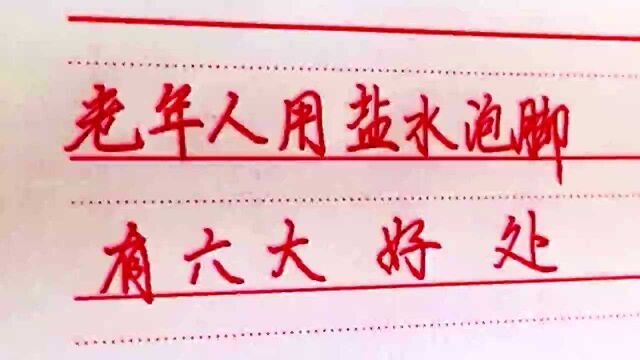 老年人用盐水泡脚
有六大好处